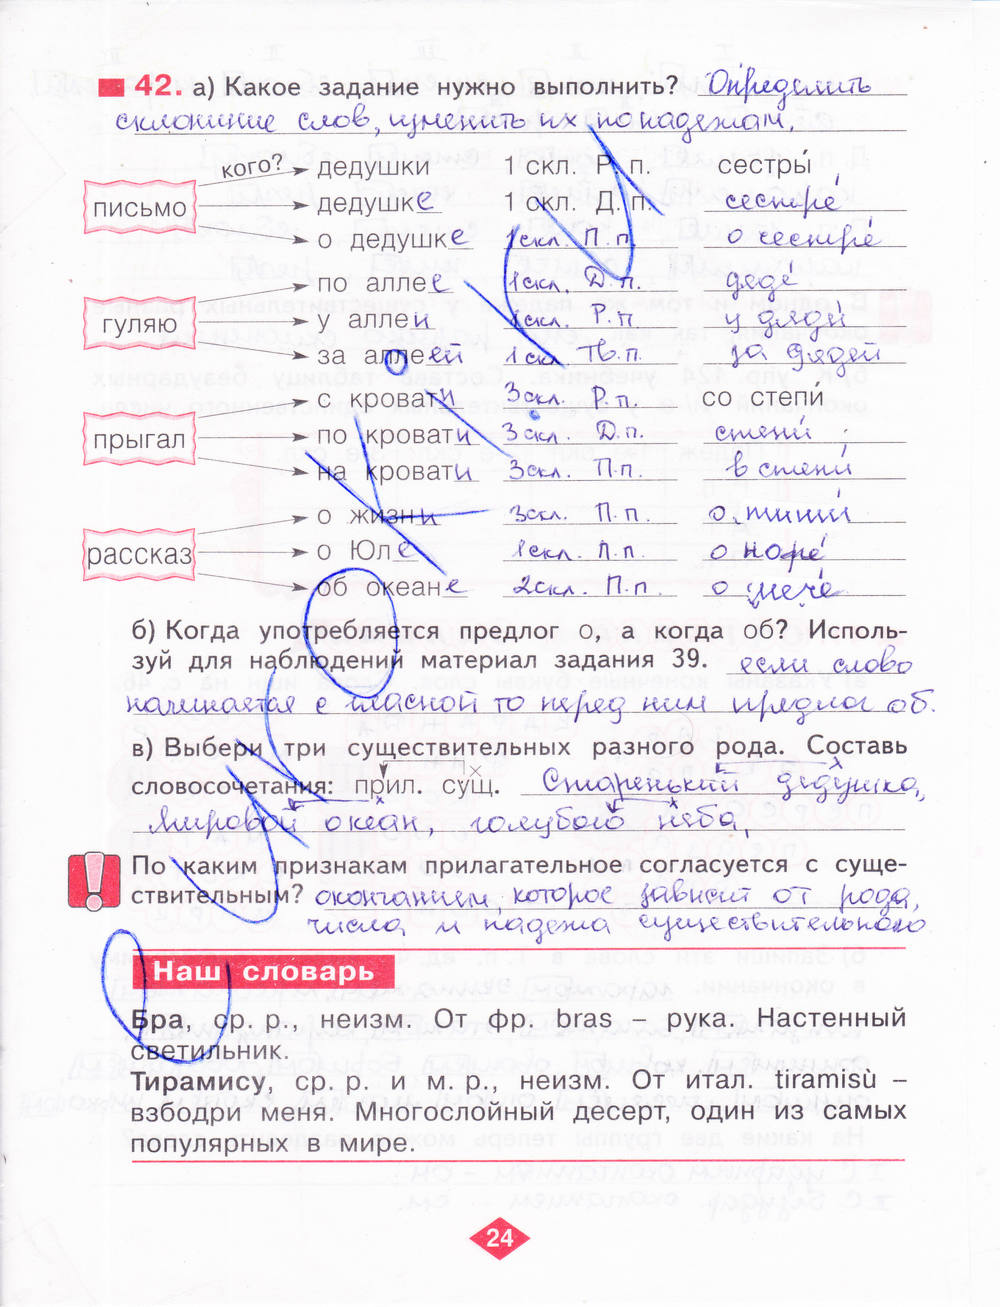 42. а) Какое задание нужно выполнить? Определить
склонение слов, изменить их по падежам.
кого?
письмо
дедушки 1 скл. Р. п. сестры́
дедушке 1 скл. Д. п. сестре́
о дедушке 1 скл. П. п. о сестре́
гуляю
по аллее 1 скл. Д. п. дяде
у аллеи 1 скл. Р. п. у дяди
за аллеей 1 скл. Тв. п. за дядей
прыгал
с кровати 3 скл. Р. п. со степи́
по кровати 3 скл. Д. п. степи́
на кровати 3 скл. П. п. в степи́
рассказ
о жизни 3 скл. П. п.
о Юле 1 скл. П. п. о норе́
об океане 2 скл. П. п. о мече́
б) Когда употребляется предлог о, а когда об? Исполь-
зуй для наблюдений материал задания 39. если слово
начинается с гласной то перед ним предлог об.
в) Выбери три существительных разного рода. Составь
словосочетания: прил. сущ. Старенький дедушка,
Мировой океан, голубого неба,
По каким признакам прилагательное согласуется с суще-
ствительным? окончанием, которое зависит от рода,
числа и падежа существительного
Наш словарь
Бра, ср. р., неизм. От фр. bras – рука. Настенный
светильник.
Тирамису, ср. р. и м. р., неизм. От итал. tiramisù –
взбодри меня. Многослойный десерт, один из самых
популярных в мире.
24